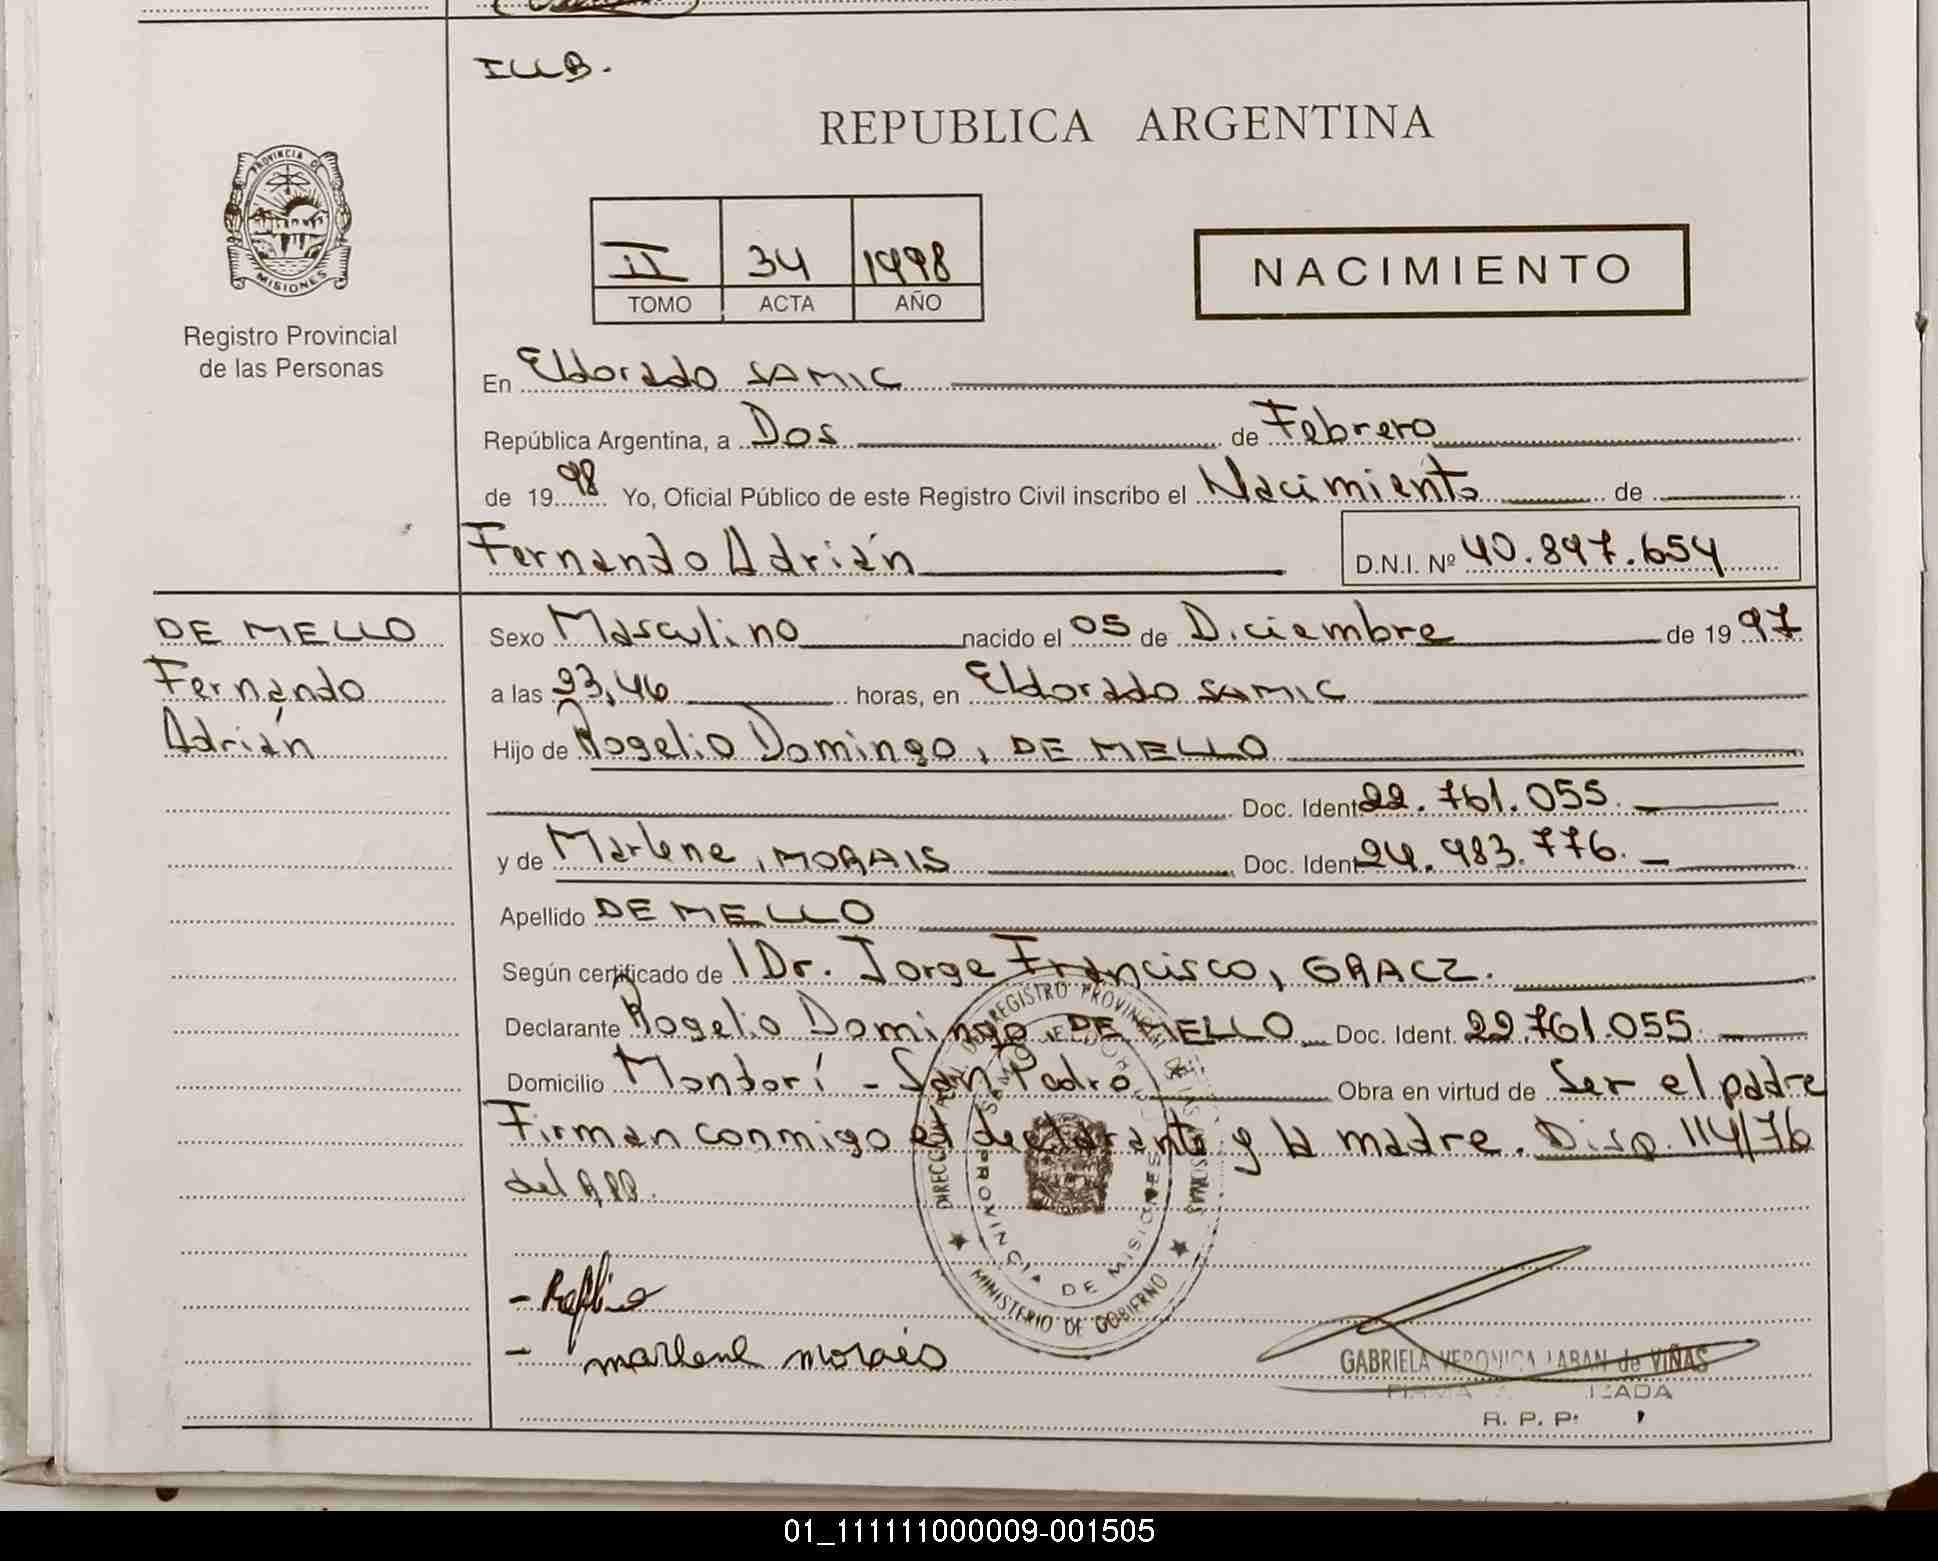 ILLB.
REPUBLICA ARGENTINA
PROVINCIA DE
MISIONES
Registro Provincial
de las Personas
II 34 1998
TOMO ACTA AÑO
NACIMIENTO
En Eldorado SAMIC
República Argentina, a Dos de Febrero
de 1998 Yo, Oficial Público de este Registro Civil inscribo el Nacimiento de
Fernando Adrián D.N.I. Nº 40.897.654
DE MELLO
Fernando
Adrián
Sexo Masculino nacido el 05 de Diciembre de 1997
a las 23,46 horas, en Eldorado SAMIC
Hijo de Rogelio Domingo, DE MELLO
Doc. Ident. 22.761.055.
y de Marlene, MORAIS Doc. Ident. 24.983.776.
Apellido DE MELLO
Según certificado de Dr. Jorge Francisco, GRACZ.
Declarante Rogelio Domingo DE MELLO Doc. Ident. 22.761.055
Domicilio Mondorí - San Pedro Obra en virtud de Ser el padre
Firman conmigo el declarante y la madre. Disp. 114/76
del RPP.
REGISTRO PROVINCIAL DE LAS PERSONAS
PROVINCIA DE MISIONES
MINISTERIO DE GOBIERNO
- marlene morais
GABRIELA VERONICA LABAN de VIÑAS
R. P. P.
01_111111000009-001505